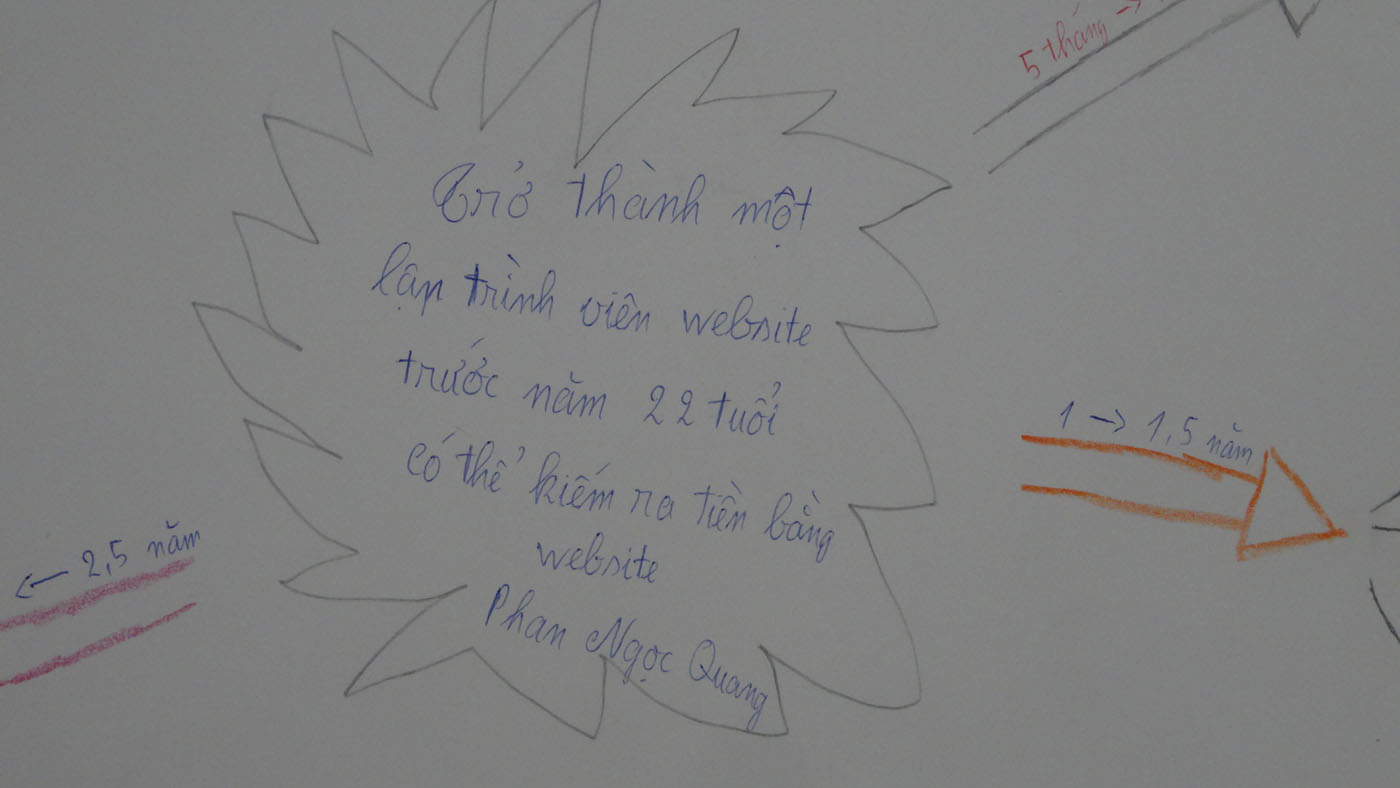 5 tháng →
Trở thành một
lập trình viên website
trước năm 22 tuổi
có thể kiếm ra tiền bằng
website
Phan Ngọc Quang
1 → 1,5 năm
← 2,5 năm